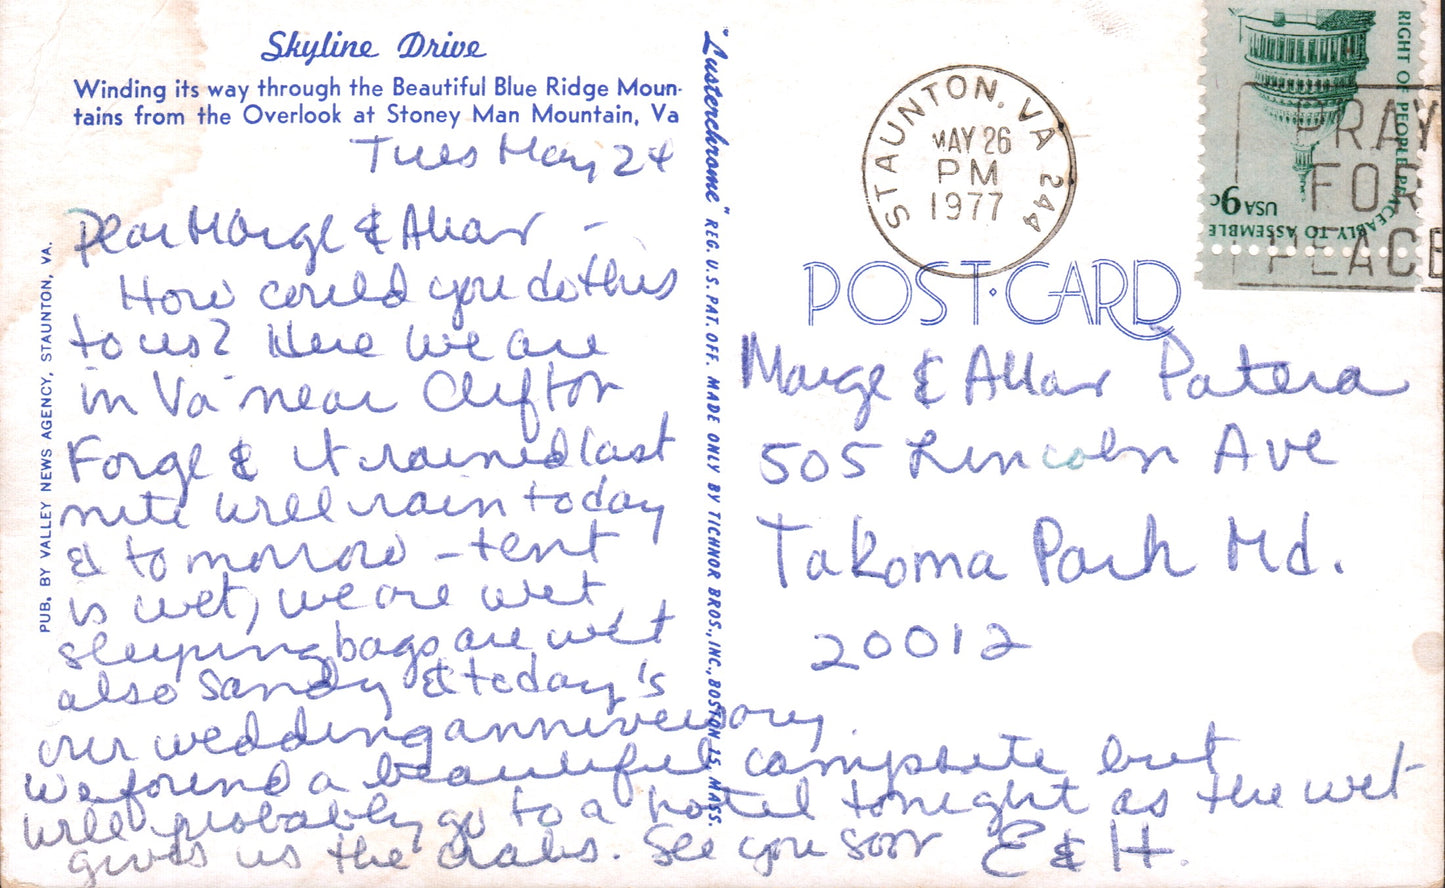 Skyline Drive
Winding its way through the Beautiful Blue Ridge Moun-
tains from the Overlook at Stoney Man Mountain, Va
Tues May 24
Dear Marge & Allan –
How could you do this
to us? Here we are
in Va near Clifton
Forge & it rained last
nite will rain today
& tomorrow – tent
is wet, we are wet
sleeping bags are wet
also Sandy & today's
our wedding anniversary
We found a beautiful campsite but
will probably go to a hotel tonight as the wet
gives us the crabs. See you soon E & H.
PUB. BY VALLEY NEWS AGENCY, STAUNTON, VA.
"Lusterchrome" REG. U.S. PAT. OFF. MADE ONLY BY TICHNOR BROS., INC., BOSTON 15, MASS.
STAUNTON, VA 244
MAY 26
PM
1977
RIGHT OF PEOPLE PEACEABLY TO ASSEMBLE
USA 9c
PRAY
FOR
PEACE
POST CARD
Marge & Allan Patera
505 Lincoln Ave
Takoma Park Md.
20012